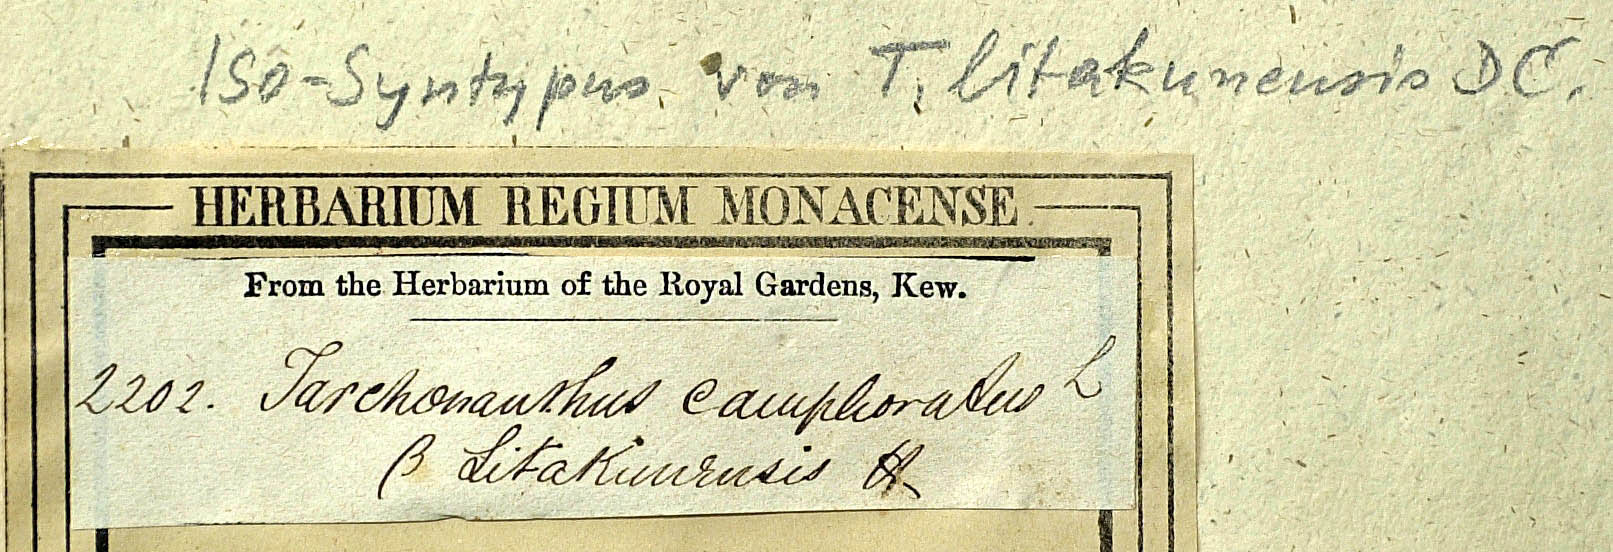 Iso-Syntypus von T. litakunensis DC.
HERBARIUM REGIUM MONACENSE.
From the Herbarium of the Royal Gardens, Kew.
2202. Tarchonanthus camphoratus L
β Litakunensis